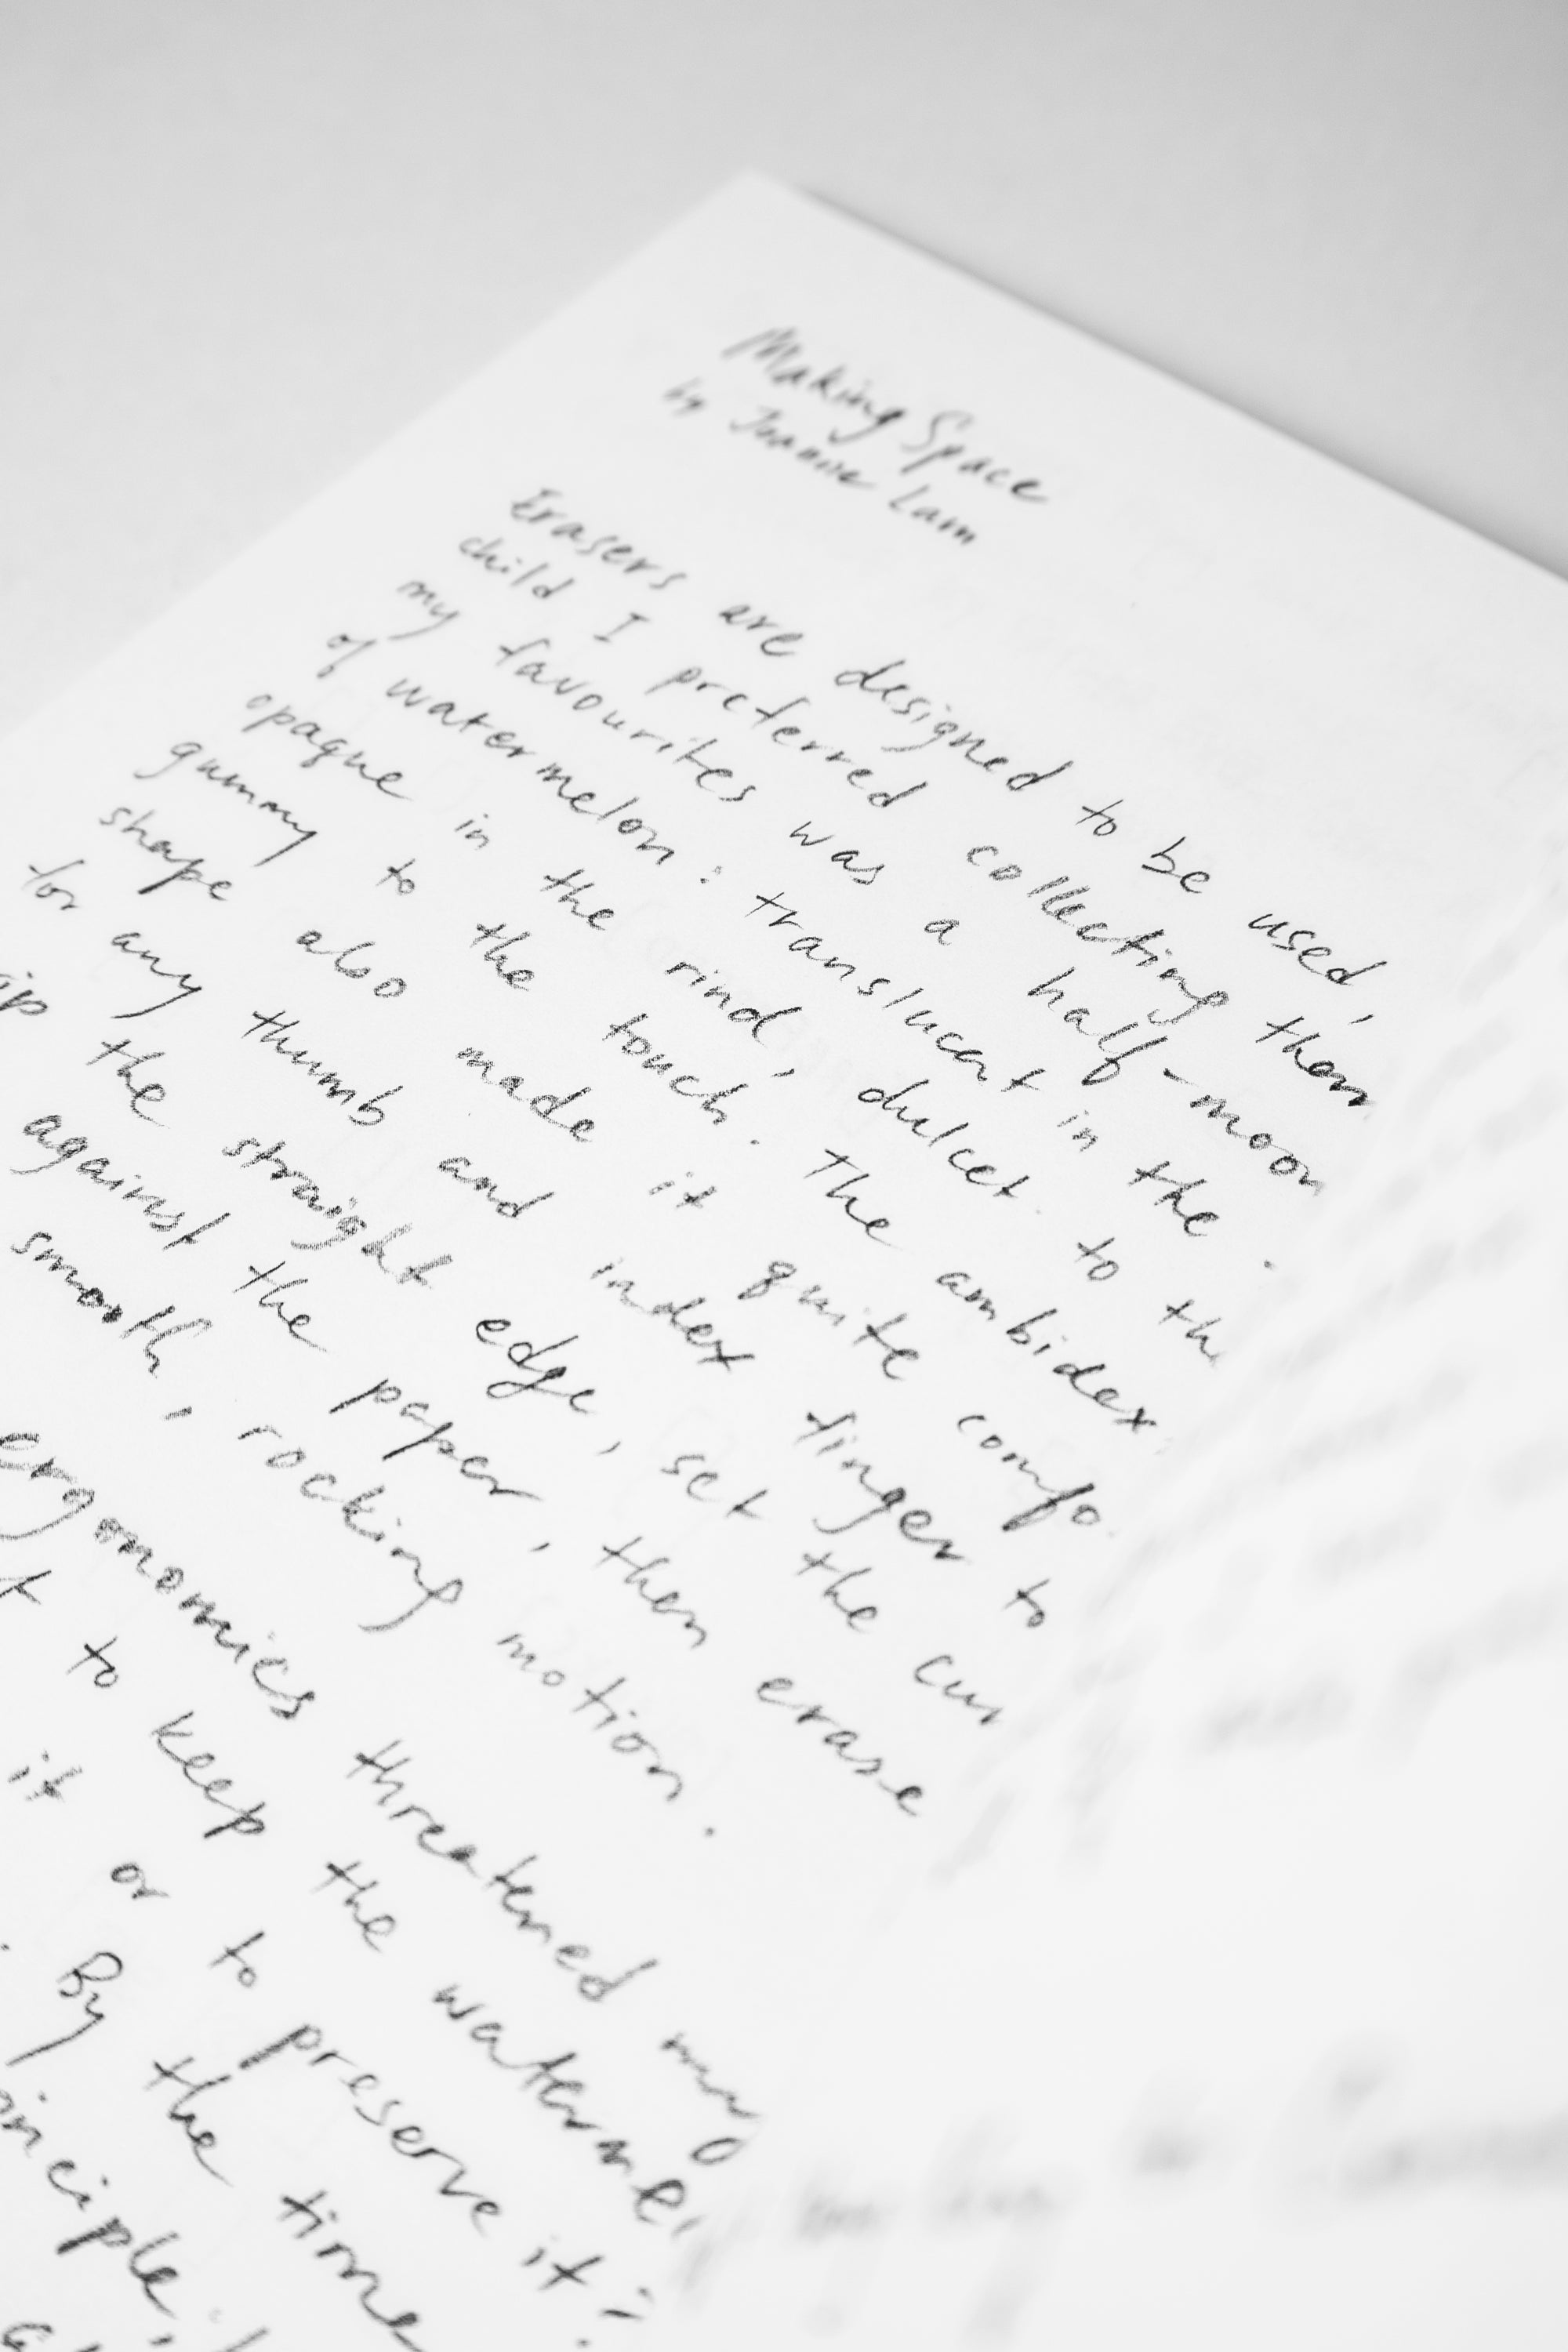 Making Space
by Joanne Lam
Erasers are designed to be used,
child I preferred collecting them
my favourites was a half-moon
of watermelon: translucent in the
opaque in the rind, dulcet to th
gummy to the touch. The ambidex
shape also made it quite comfo
for any thumb and index finger to
the straight edge, set the cur
against the paper, then erase
smooth, rocking motion.
ergonomics threatened my
to keep the waterme
it or to preserve it?
By the time
inciple,